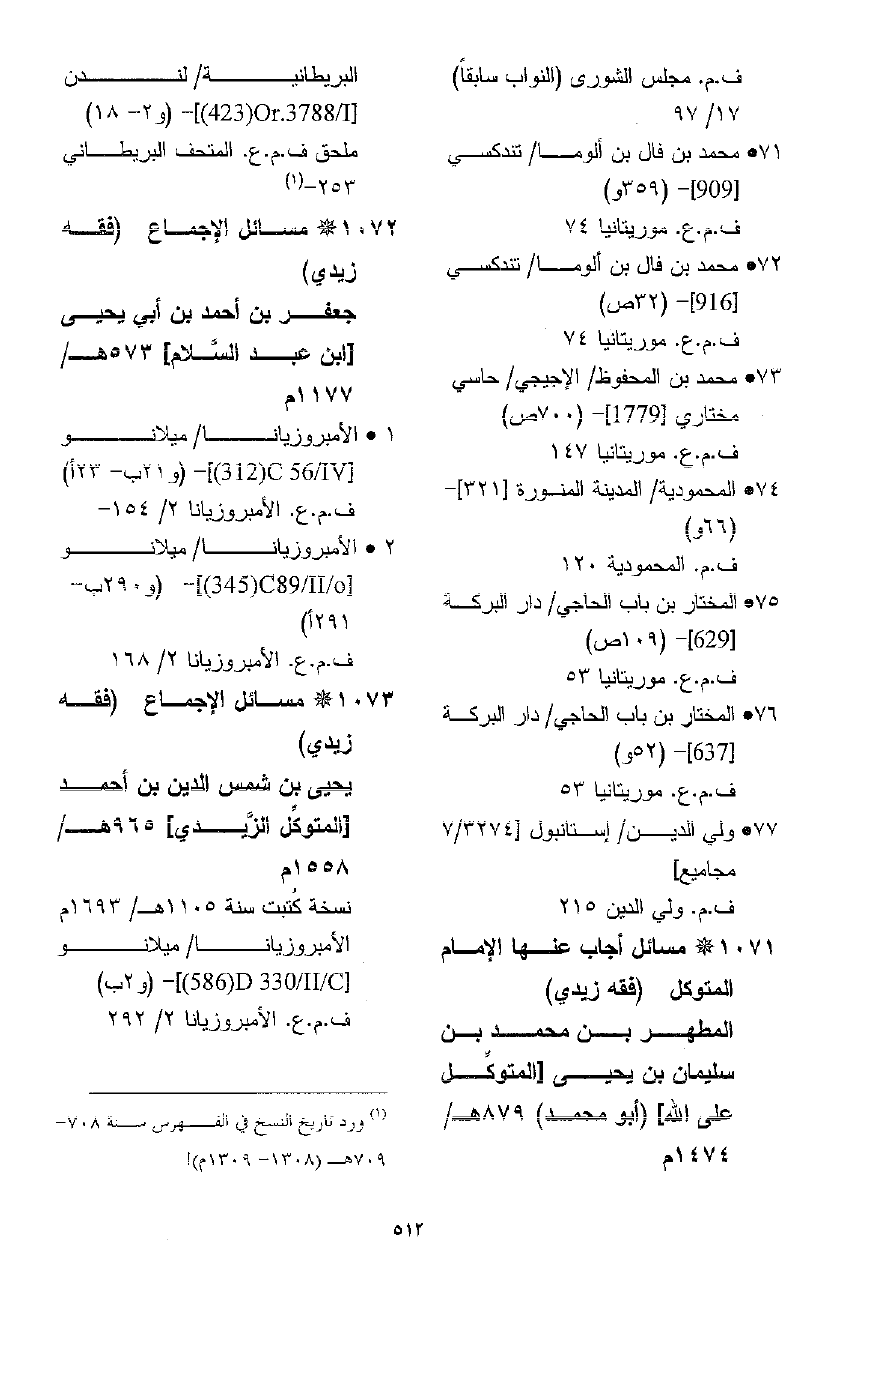 ف.م. مجلس الشورى (النواب سابقاً)
١٧/ ٩٧
•٧١ محمد بن فال بن ألوما/ تندكسي
[909]- (٣٥٩و)
ف.م.ع. موريتانيا ٧٤
•٧٢ محمد بن فال بن ألوما/ تندكسي
[916]- (٣٢ص)
ف.م.ع. موريتانيا ٧٤
•٧٣ محمد بن المحفوظ/ الإجيجي/ حاسي
مختاري [1779]- (٧٠٠ص)
ف.م.ع. موريتانيا ١٤٧
•٧٤ المحمودية/ المدينة المنورة [٣٢١]-
(٦٦و)
ف.م. المحمودية ١٢٠
•٧٥ المختار بن باب الحاجي/ دار البركة
[629]- (١٠٩ص)
ف.م.ع. موريتانيا ٥٣
•٧٦ المختار بن باب الحاجي/ دار البركة
[637]- (٥٢و)
ف.م.ع. موريتانيا ٥٣
•٧٧ ولي الدين/ إستانبول [٧/٣٢٧٤
مجاميع]
ف.م. ولي الدين ٢١٥
١٠٧١ ❋ مسائل أجاب عنها الإمام
المتوكل (فقه زيدي)
المطهر بن محمد بن
سليمان بن يحيى [المتوكِّل
على الله] (أبو محمد) ٨٧٩هـ/
١٤٧٤م
البريطانية/ لندن
[Or.3788/I(423)]- (و٢- ١٨)
ملحق ف.م.ع. المتحف البريطاني
٢٥٣-(١)
١٠٧٢ ❋ مسائل الإجماع (فقه
زيدي)
جعفر بن أحمد بن أبي يحيى
[ابن عبد السَّلام] ٥٧٣هـ/
١١٧٧م
١ • الأمبروزيانا/ ميلانو
[C 56/IV(312)]- (و٢١ب- ٢٣أ)
ف.م.ع. الأمبروزيانا ٢/ ١٥٤-
٢ • الأمبروزيانا/ ميلانو
[C89/II/o(345)]- (و٢٩٠ب-
٢٩١أ)
ف.م.ع. الأمبروزيانا ٢/ ١٦٨
١٠٧٣ ❋ مسائل الإجماع (فقه
زيدي)
يحيى بن شمس الدين بن أحمد
[المتوكِّل الزَّيدي] ٩٦٥هـ/
١٥٥٨م
نسخة كُتبت سنة ١١٠٥هـ/ ١٦٩٣م
الأمبروزيانا/ ميلانو
[D 330/II/C(586)]- (و٢ب)
ف.م.ع. الأمبروزيانا ٢/ ٢٩٢
(١) ورد تاريخ النسخ في الفهرس سنة ٧٠٨-
٧٠٩هـ (١٣٠٨- ١٣٠٩م)!
٥١٢